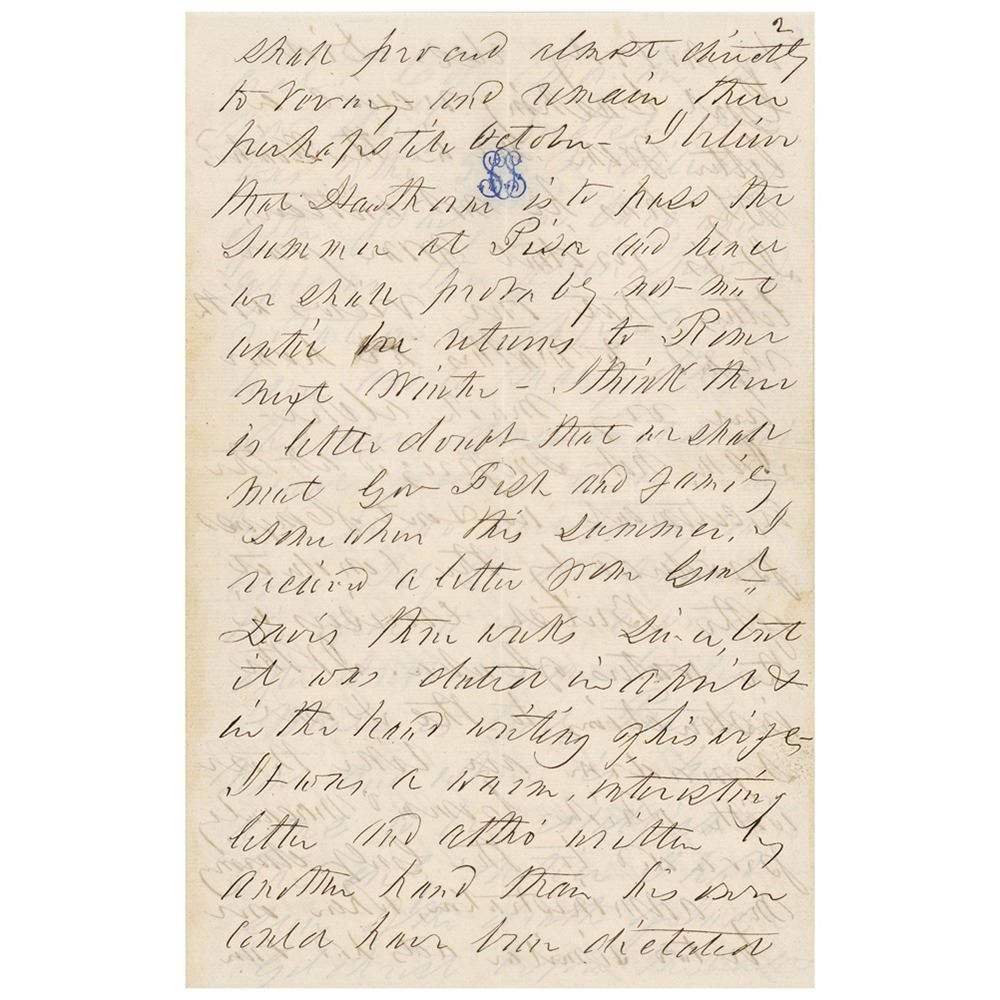 2
shall proceed almost directly
to Vevay - and remain there
perhaps till October - I believe
that Hawthorne is to pass the
Summer at Pisa and hence
we shall probably not meet
until he returns to Rome
next Winter - I think there
is little doubt that we shall
meet Gov Fish and family
somewhere this summer. I
received a letter from Genl
Davis three weeks since, but
it was dated in April &
in the hand writing of his wife -
It was a warm, interesting
letter and altho' written by
another hand than his own
could have been dictated